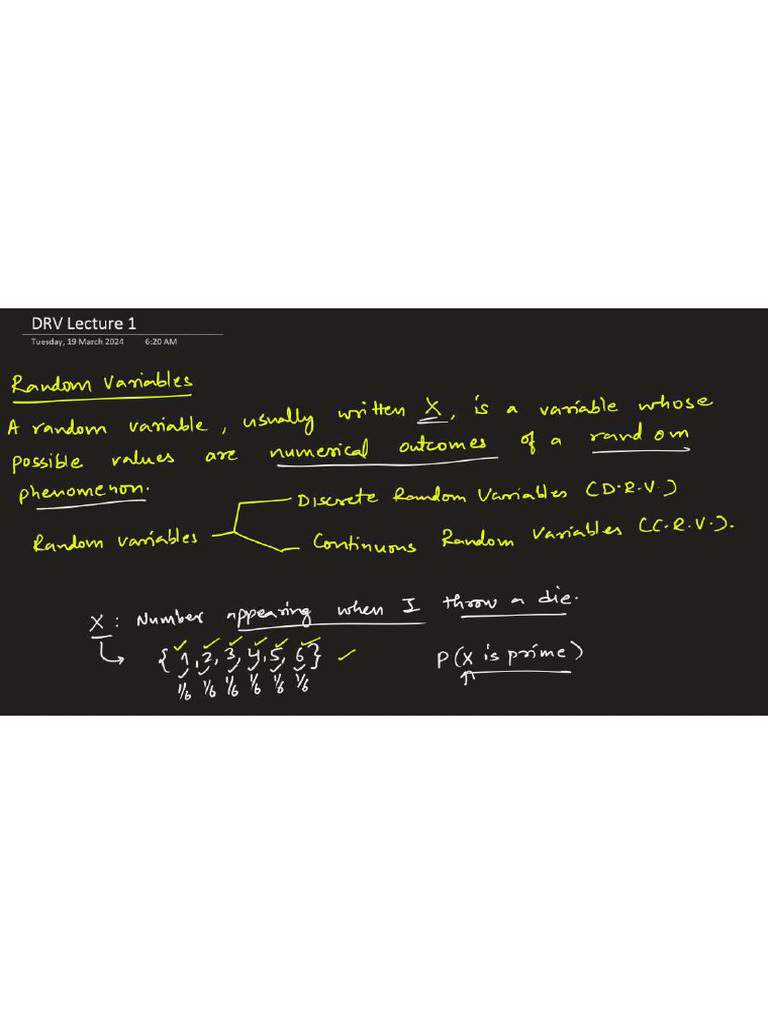 DRV Lecture 1
Tuesday, 19 March 2024 6:20 AM
Random Variables
A random variable, usually written X, is a variable whose
possible values are numerical outcomes of a random
phenomenon.
Discrete Random Variables (D.R.V.)
Random Variables
Continuous Random Variables (C.R.V.).
X: Number appearing when I throw a die.
{1,2,3,4,5,6} P(X is prime)
1/6 1/6 1/6 1/6 1/6 1/6